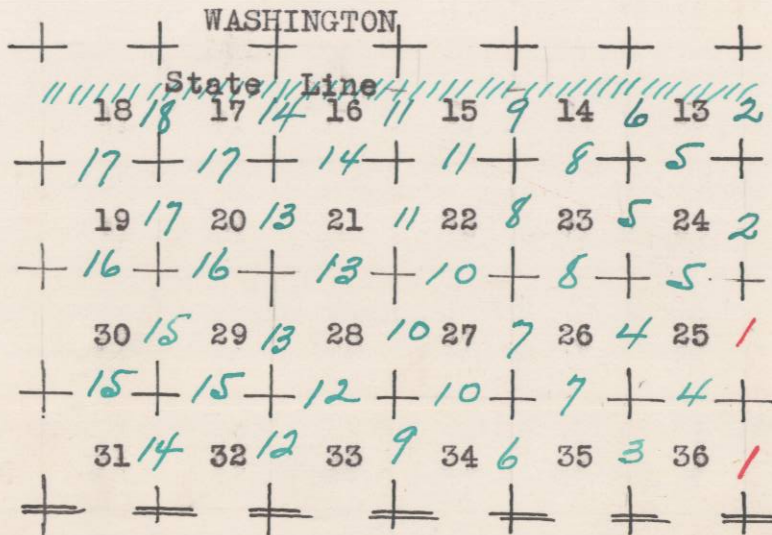 WASHINGTON
State Line
18 18 17 14 16 11 15 9 14 6 13 2
17 17 14 11 8 5
19 17 20 13 21 11 22 8 23 5 24 2
16 16 13 10 8 5
30 15 29 13 28 10 27 7 26 4 25 1
15 15 12 10 7 4
31 14 32 12 33 9 34 6 35 3 36 1